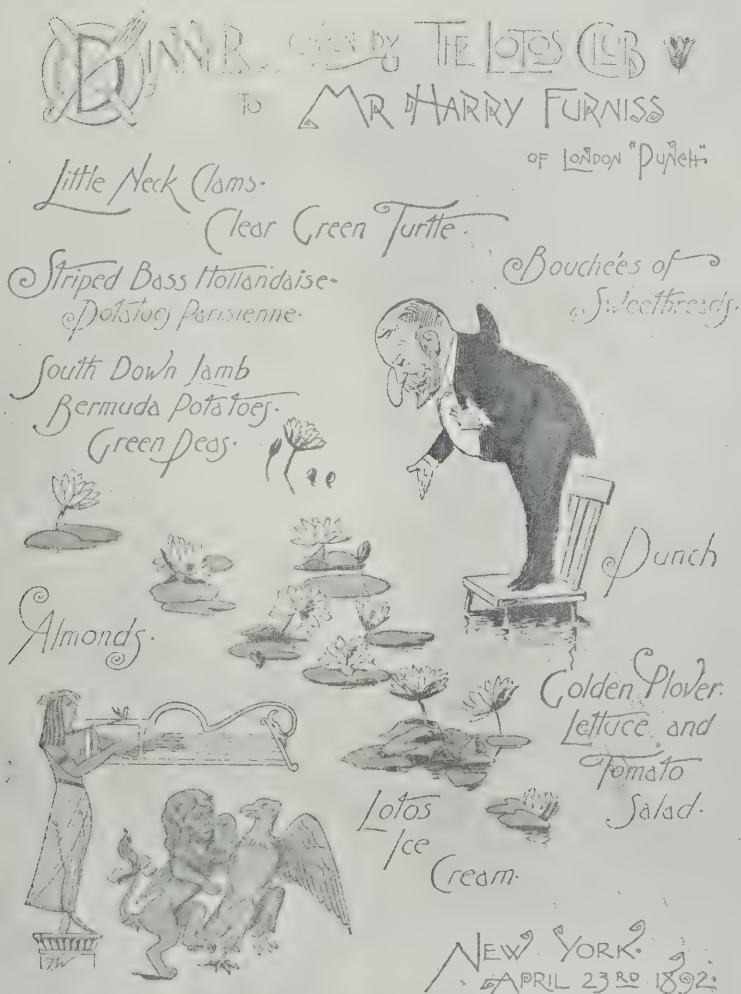 DINNER GIVEN BY THE LOTOS CLUB
TO MR HARRY FURNISS
OF LONDON "PUNCH".
Little Neck Clams.
Clear Green Turtle.
Striped Bass Hollandaise.
Potatoes Parisienne.
Bouchées of
Sweetbreads.
South Down Lamb
Bermuda Potatoes.
Green Peas.
Punch
Almonds.
Golden Plover.
Lettuce and
Tomato
Salad.
Lotos
Ice
Cream.
NEW YORK.
APRIL 23RD 1892.